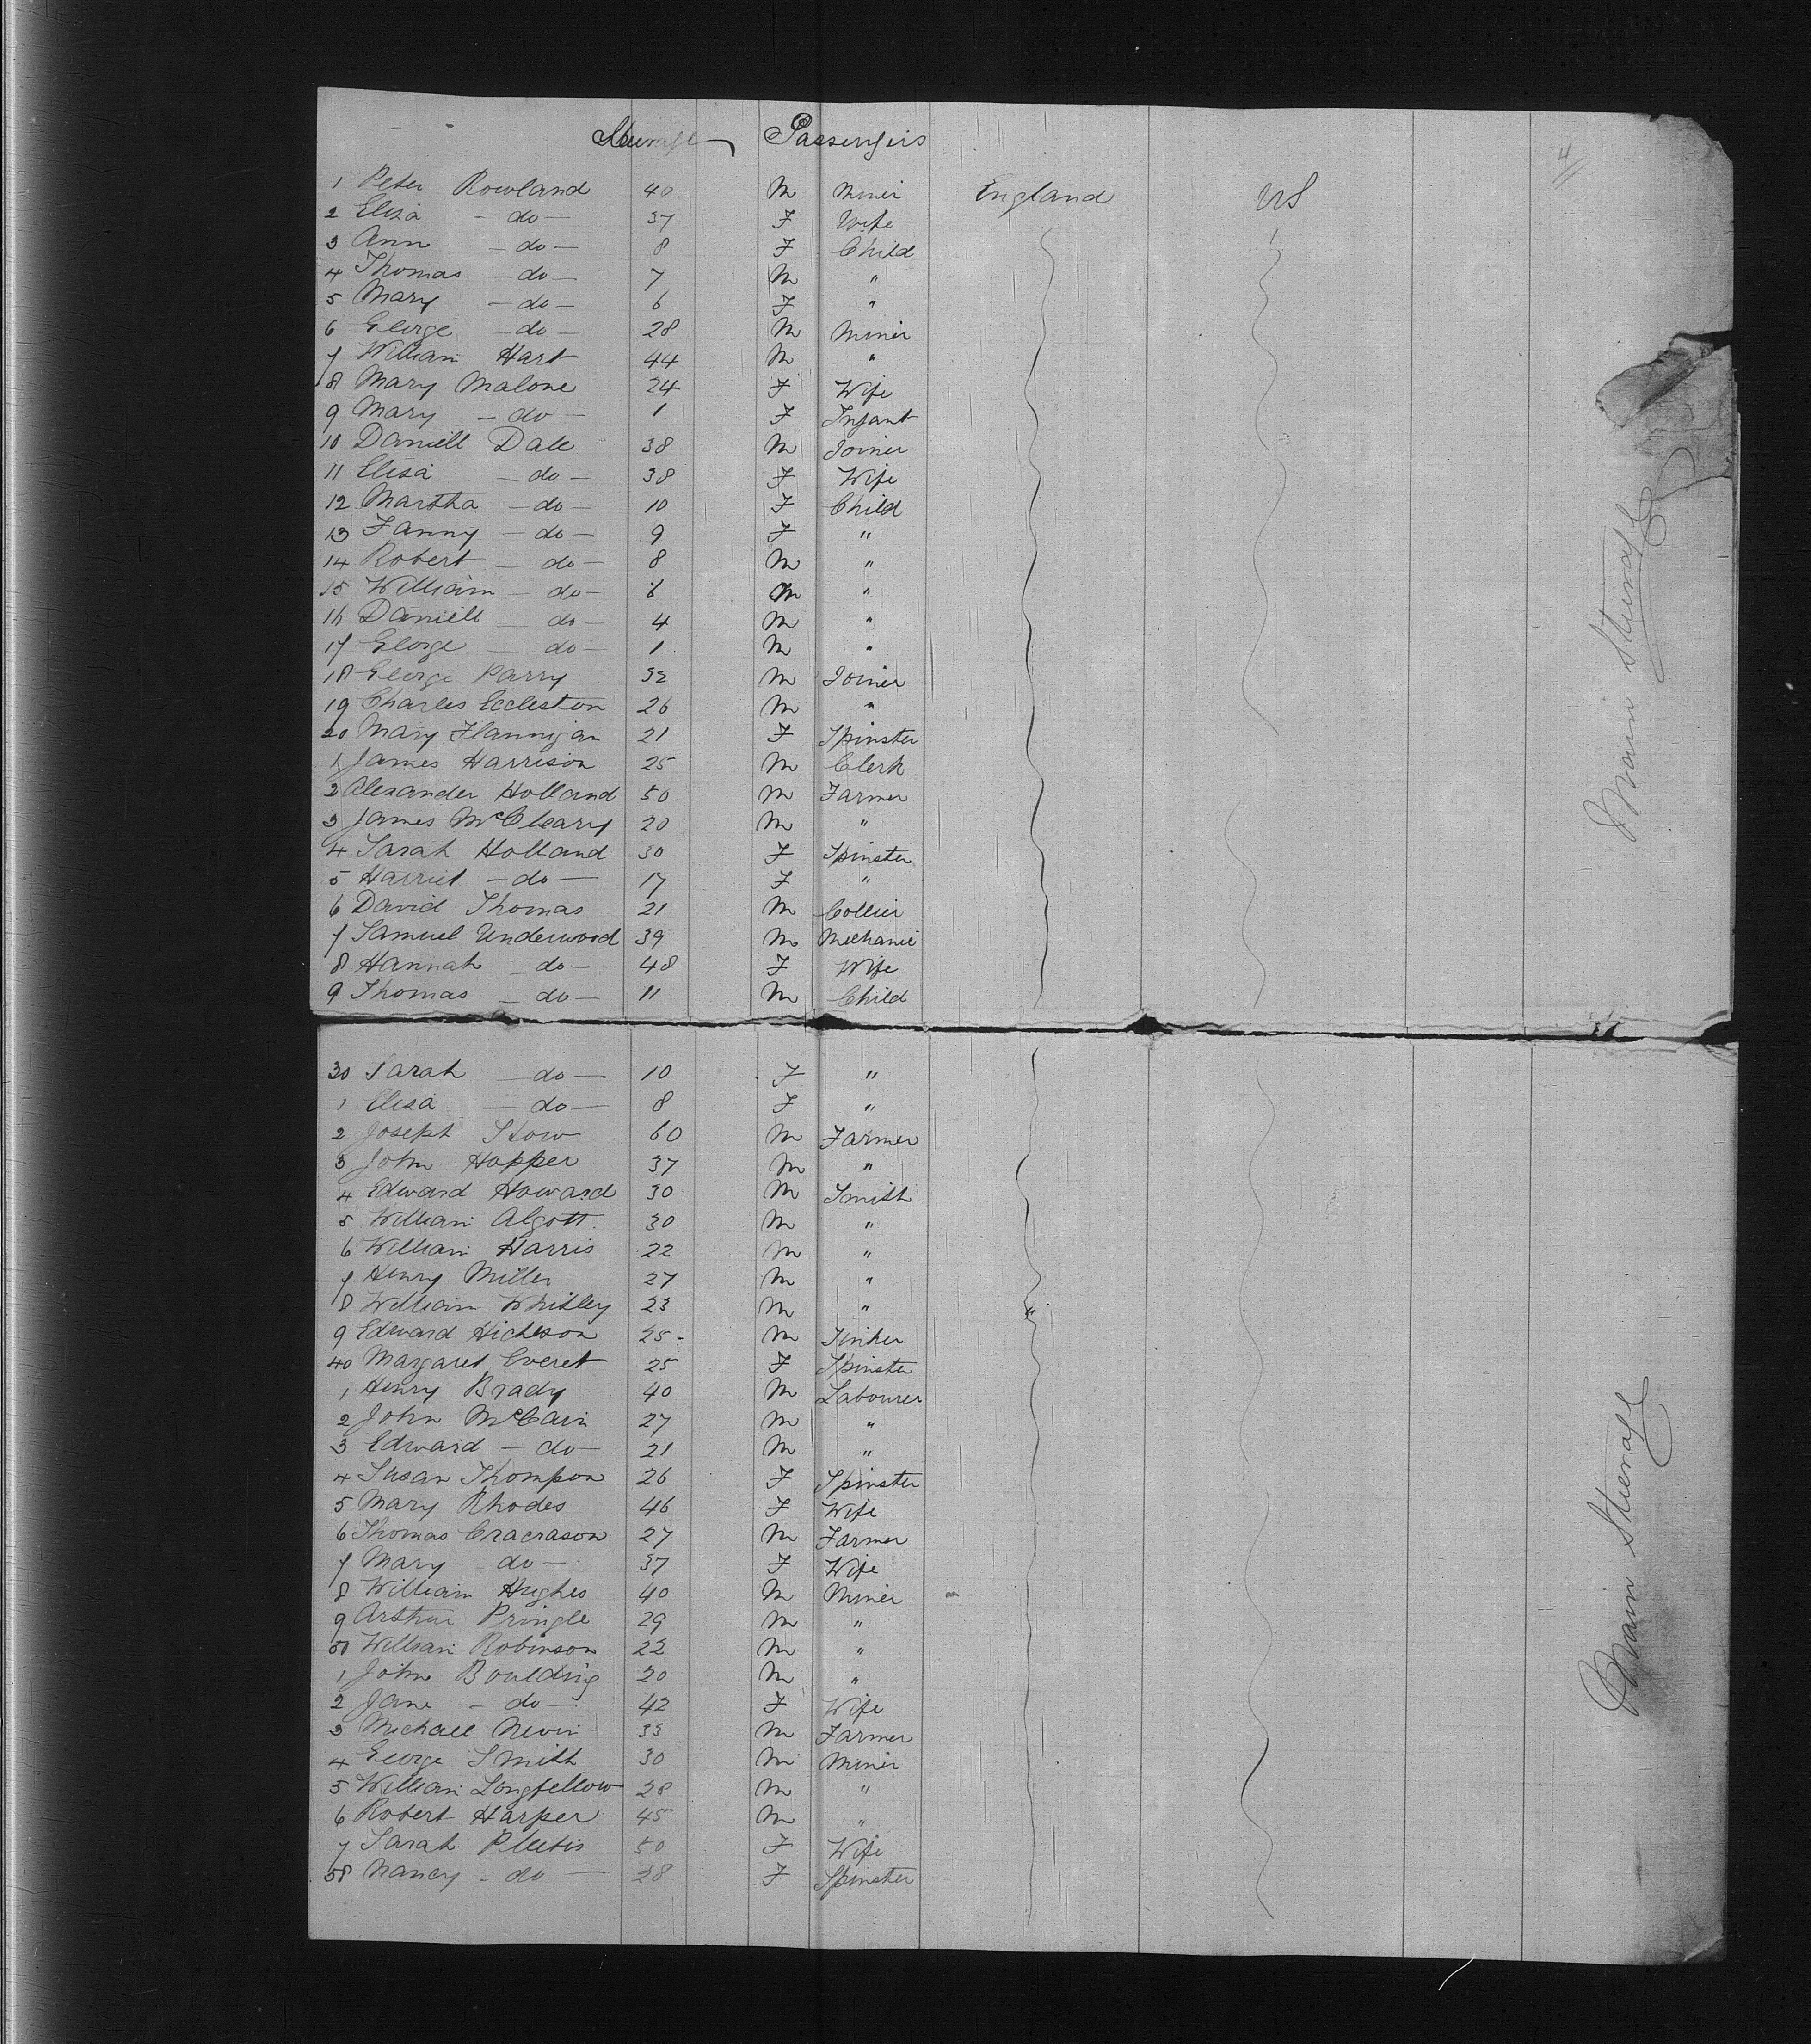 Steerage Passengers
4
1 Peter Rowland 40 M Miner England US
2 Eliza - do - 37 F Wife
3 Ann - do - 8 F Child
4 Thomas - do - 7 M "
5 Mary - do - 6 F "
6 George - do - 28 M Miner
7 William Hart 44 M "
8 Mary Malone 24 F Wife
9 Mary - do - 1 F Infant
10 Daniell Dale 38 M Joiner
11 Eliza - do - 38 F Wife
12 Martha - do - 10 F Child
13 Fanny - do - 9 F "
14 Robert - do - 8 M "
15 William - do - 6 M "
16 Daniell - do - 4 M "
17 George - do - 1 M "
18 George Parry 32 M Joiner
19 Charles Eccleston 26 M "
20 Mary Flannigan 21 F Spinster
1 James Harrison 25 M Clerk
2 Alexander Holland 50 M Farmer
3 James McCleary 20 M "
4 Sarah Holland 30 F Spinster
5 Harriet - do - 17 F "
6 David Thomas 21 M Collier
7 Samuel Underwood 39 M Mechanic
8 Hannah - do - 48 F Wife
9 Thomas - do - 11 M Child
Main Steerage
30 Sarah - do - 10 F "
1 Eliza - do - 8 F "
2 Joseph Stow 60 M Farmer
3 John Hopper 37 M "
4 Edward Howard 30 M Smith
5 William Algott 30 M "
6 William Harris 22 M "
7 Henry Miller 27 M "
8 William Whitley 23 M " "
9 Edward Hickson 25 - M Tinker
40 Margaret Everet 25 F Spinster
1 Henry Brady 40 M Labourer
2 John McCain 27 M "
3 Edward - do - 21 M "
4 Susan Thompson 26 F Spinster
5 Mary Rhodes 46 F Wife
6 Thomas Cracrason 27 M Farmer
7 Mary do - 37 F Wife
8 William Hughes 40 M Miner
9 Arthur Pringle 29 M "
50 William Robinson 22 M "
1 John Boulding 20 M "
2 Jane - do - 42 F Wife
3 Michael Nevin 33 M Farmer
4 George Smith 30 M Miner
5 William Longfellow 28 M "
6 Robert Harper 45 M "
7 Sarah 50 F Wife
58 Nancy - do - 28 F Spinster
Main Steerage